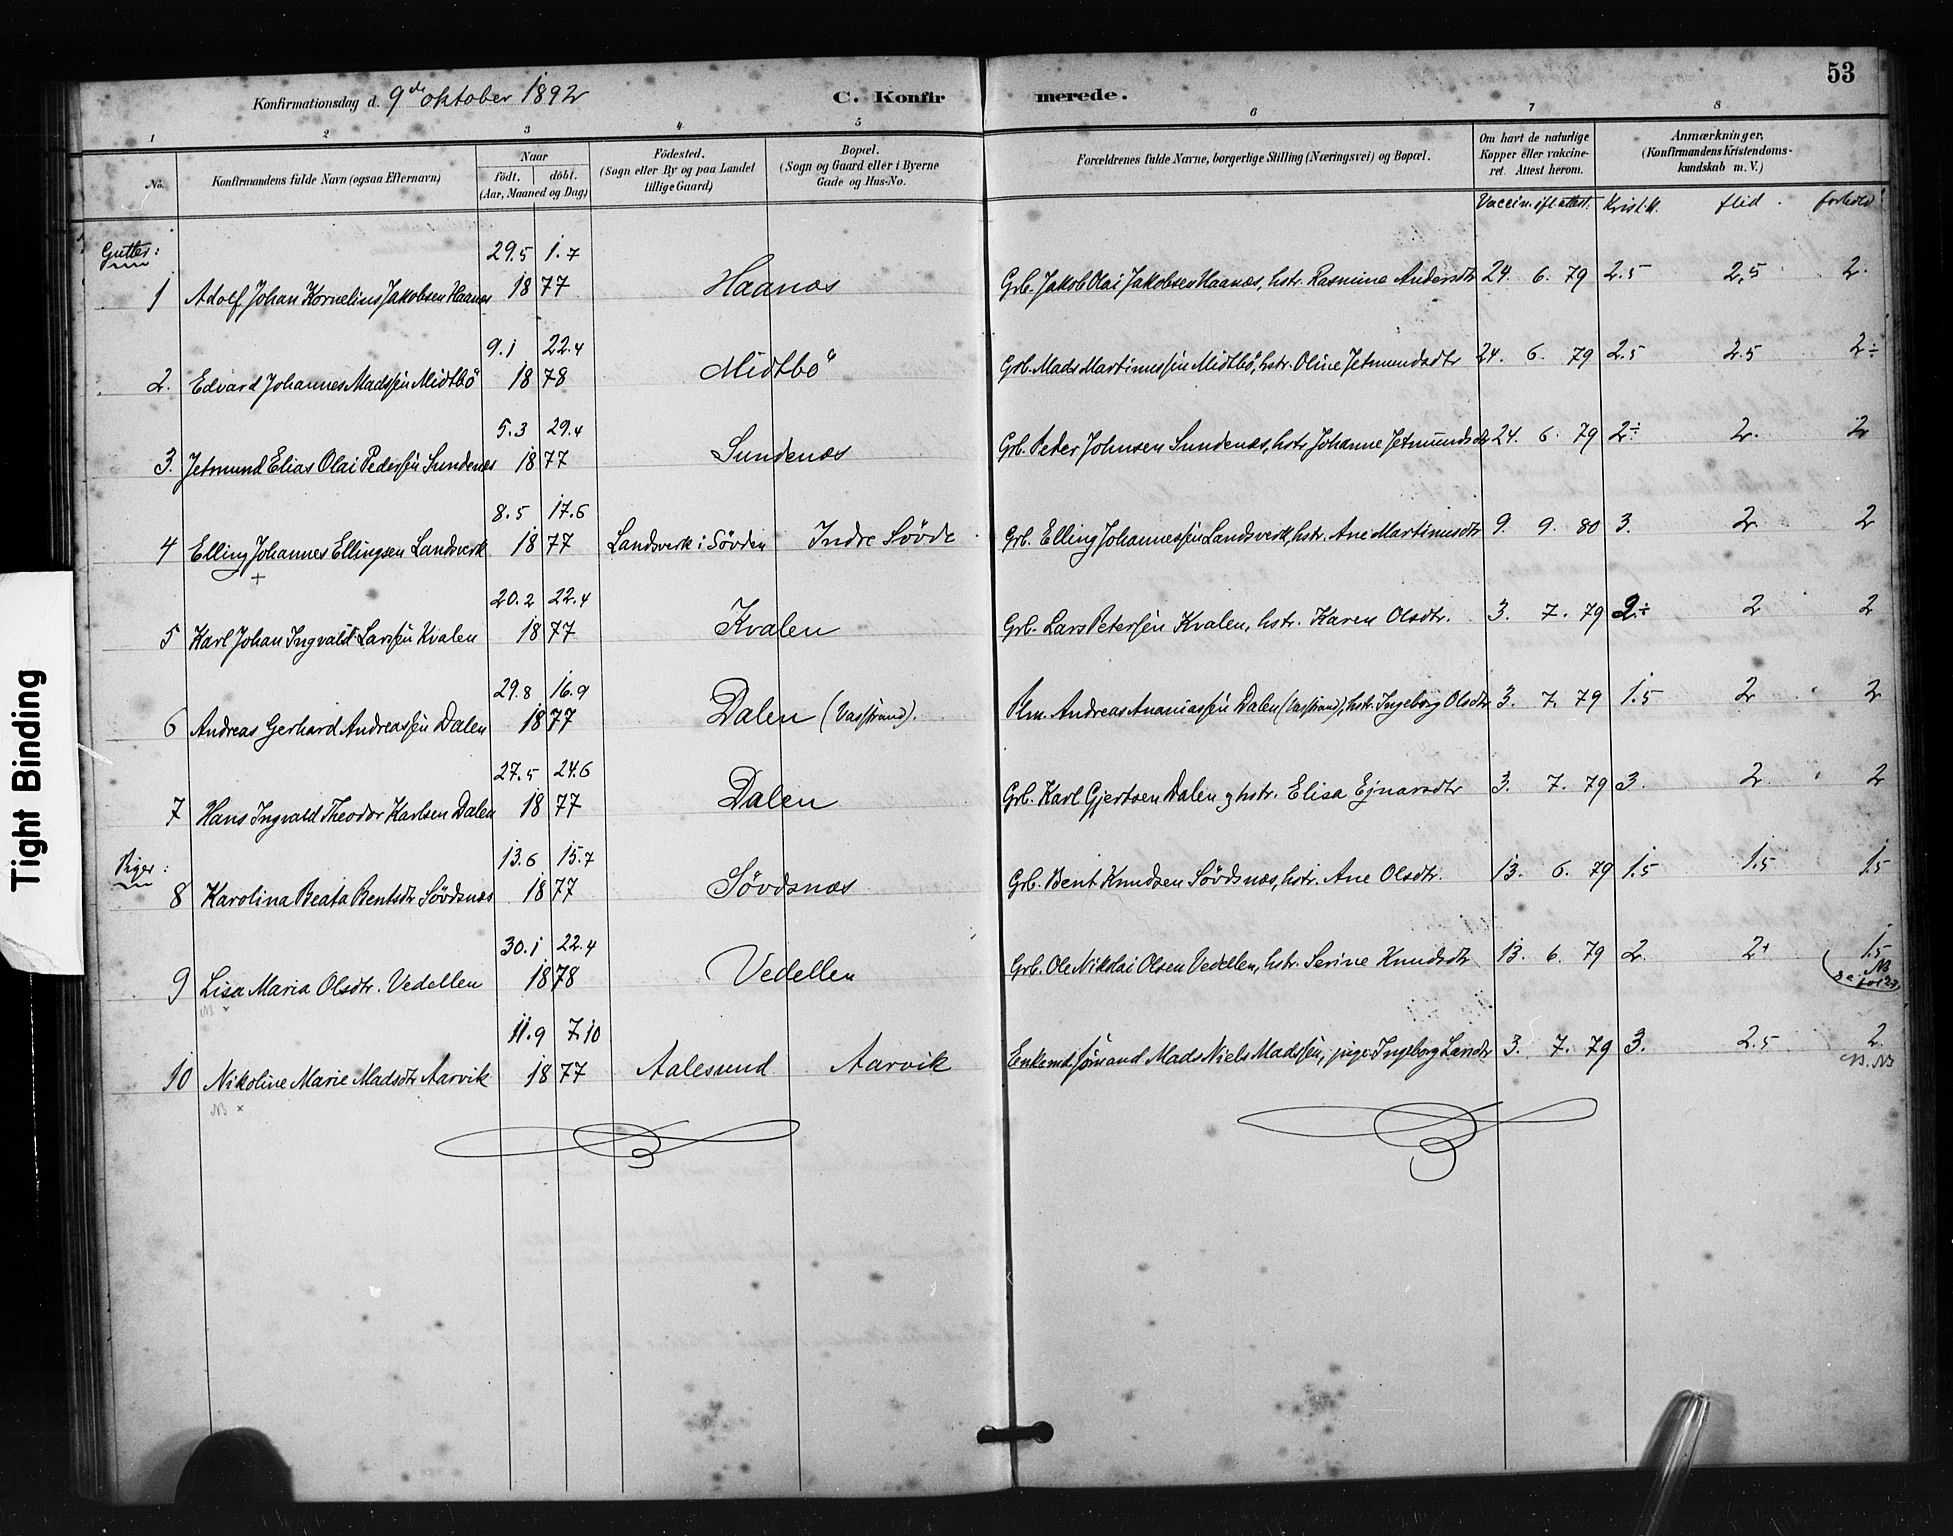 53
Konfirmationsdag d. 9de oktober 1892
C. Konfirmerede.
1 2 3 4 5 6 7 8
No.
Konfirmandens fulde Navn (ogsaa Efternavn)
Naar
födt. döbt.
(Aar, Maaned og Dag)
Födested.
(Sogn eller By og paa Landet
tillige Gaard)
Bopæl.
(Sogn og Gaard eller i Byerne
Gade og Hus-No.
Forældrenes fulde Navne, borgerlige Stilling (Næringsvei) og Bopæl.
Om havt de naturlige
Kopper eller vakcine-
ret. Attest herom.
Anmærkninger,
(Konfirmandens Kristendoms-
kundskab m. V.)
Vaccin. ifl. attest. Kristd.k. flid. forhold
Gutter:
29.5 1.7
1 Adolf Johan Kornelius Jakobsen Haanæs 1877 Haanæs Grb. Jakob Olai Jakobsen Haanæs, hstr. Rasmine Andersdtr 24. 6. 79 2.5 2,5 2.
9.1 22.4
2. Edvard Johannes Madssen Midtbö 1878 Midtbö Grb. Mads Martinussen Midtbö, hstr. Oline Jetmundsdtr 24. 6. 79 2.5 2.5 2÷
5.3 29.4
3. Jetmund Elias Olai Pedersen Sundenæs 1877 Sundenæs Grb. Peder Johnsen Sundenæs, hstr. Johanne Jetmundsdtr 24. 6. 79 2÷ 2. 2
8.5 17.6
4 Elling Johannes Ellingsen Landsverk 1877 Landsverk i Sövden Indre Sövde Grb. Elling Johannessen Landsverk, hstr. Ane Martinusdtr 9. 9. 80 3. 2 2
+
20.2 22.4
5 Karl Johan Ingvald Larssen Kvalen 1877 Kvalen Grb. Lars Petersen Kvalen, hstr. Karen Olsdtr. 3. 7. 79 2÷ 2 2
29.8 16.9
6 Andreas Gerhard Andreassen Dalen 1877 Dalen (Vasstrand). Plm. Andreas Ananiassen Dalen (Vasstrand), hstr. Ingeborg Olsdtr 3. 7. 79 1.5 2 2
27.5 24.6
7 Hans Ingvald Theodor Karlsen Dalen 1877 Dalen Grb. Karl Gjertsen Dalen og hstr. Elisa Ejnarsdtr 3. 7. 79 3. 2 2
Piger:
13.6 15.7
8 Karolina Beata Bentsdtr Sövdsnæs 1877 Sövdsnæs Grb. Bent Knudsen Sövdsnæs, hstr. Ane Olsdtr. 13. 6. 79 1.5 1.5 1.5
30.1 22.4
9 Lisa Maria Olsdtr. Vedellen 1878 Vedellen Grb. Ole Nikolai Olsen Vedellen, hstr. Serine Knudsdtr 13. 6. 79 2. 2+ 1.5
NB x NB
11.9 7.10
10 Nikoline Marie Madsdtr Aarvik 1877 Aalesund Aarvik Enkemd. sömand Mads Niels Madssen, pige Ingeborg Larsdtr 3. 7. 79 3. 2.5 2.
NB x N. NB
Tight Binding